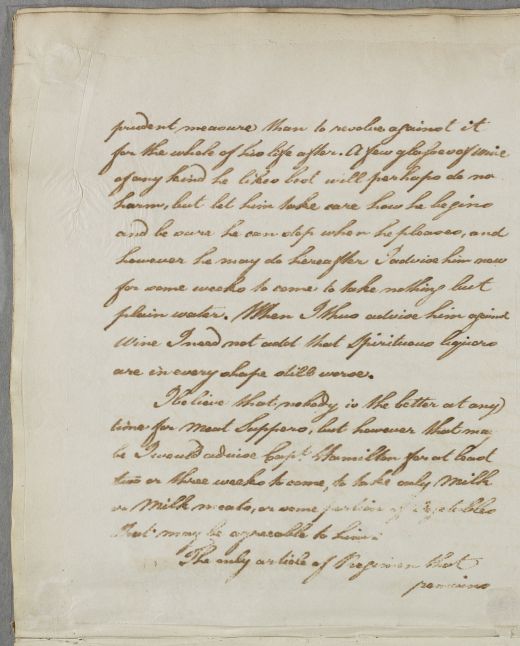 prudent measure than to resolve against it
for the whole of his life after. A few glasses of Wine
of any kind he likes best will perhaps do no
harm, but let him take care how he begins
and be sure he can stop when he pleases, and
however he may do hereafter I advise him now
for some weeks to come to take nothing but
plain water. When I thus advise him against
Wine I need not add that Spirituous liquors
are in every shape still worse.
I believe that nobody is the better at any
time for meat Suppers, but however that may
be I would advise Capt. Hamilton for at least
two or three weeks to come, to take only Milk
or Milk meats, or some portion of Vegetables
that may be agreeable to him.
The only article of Regimen that
remains